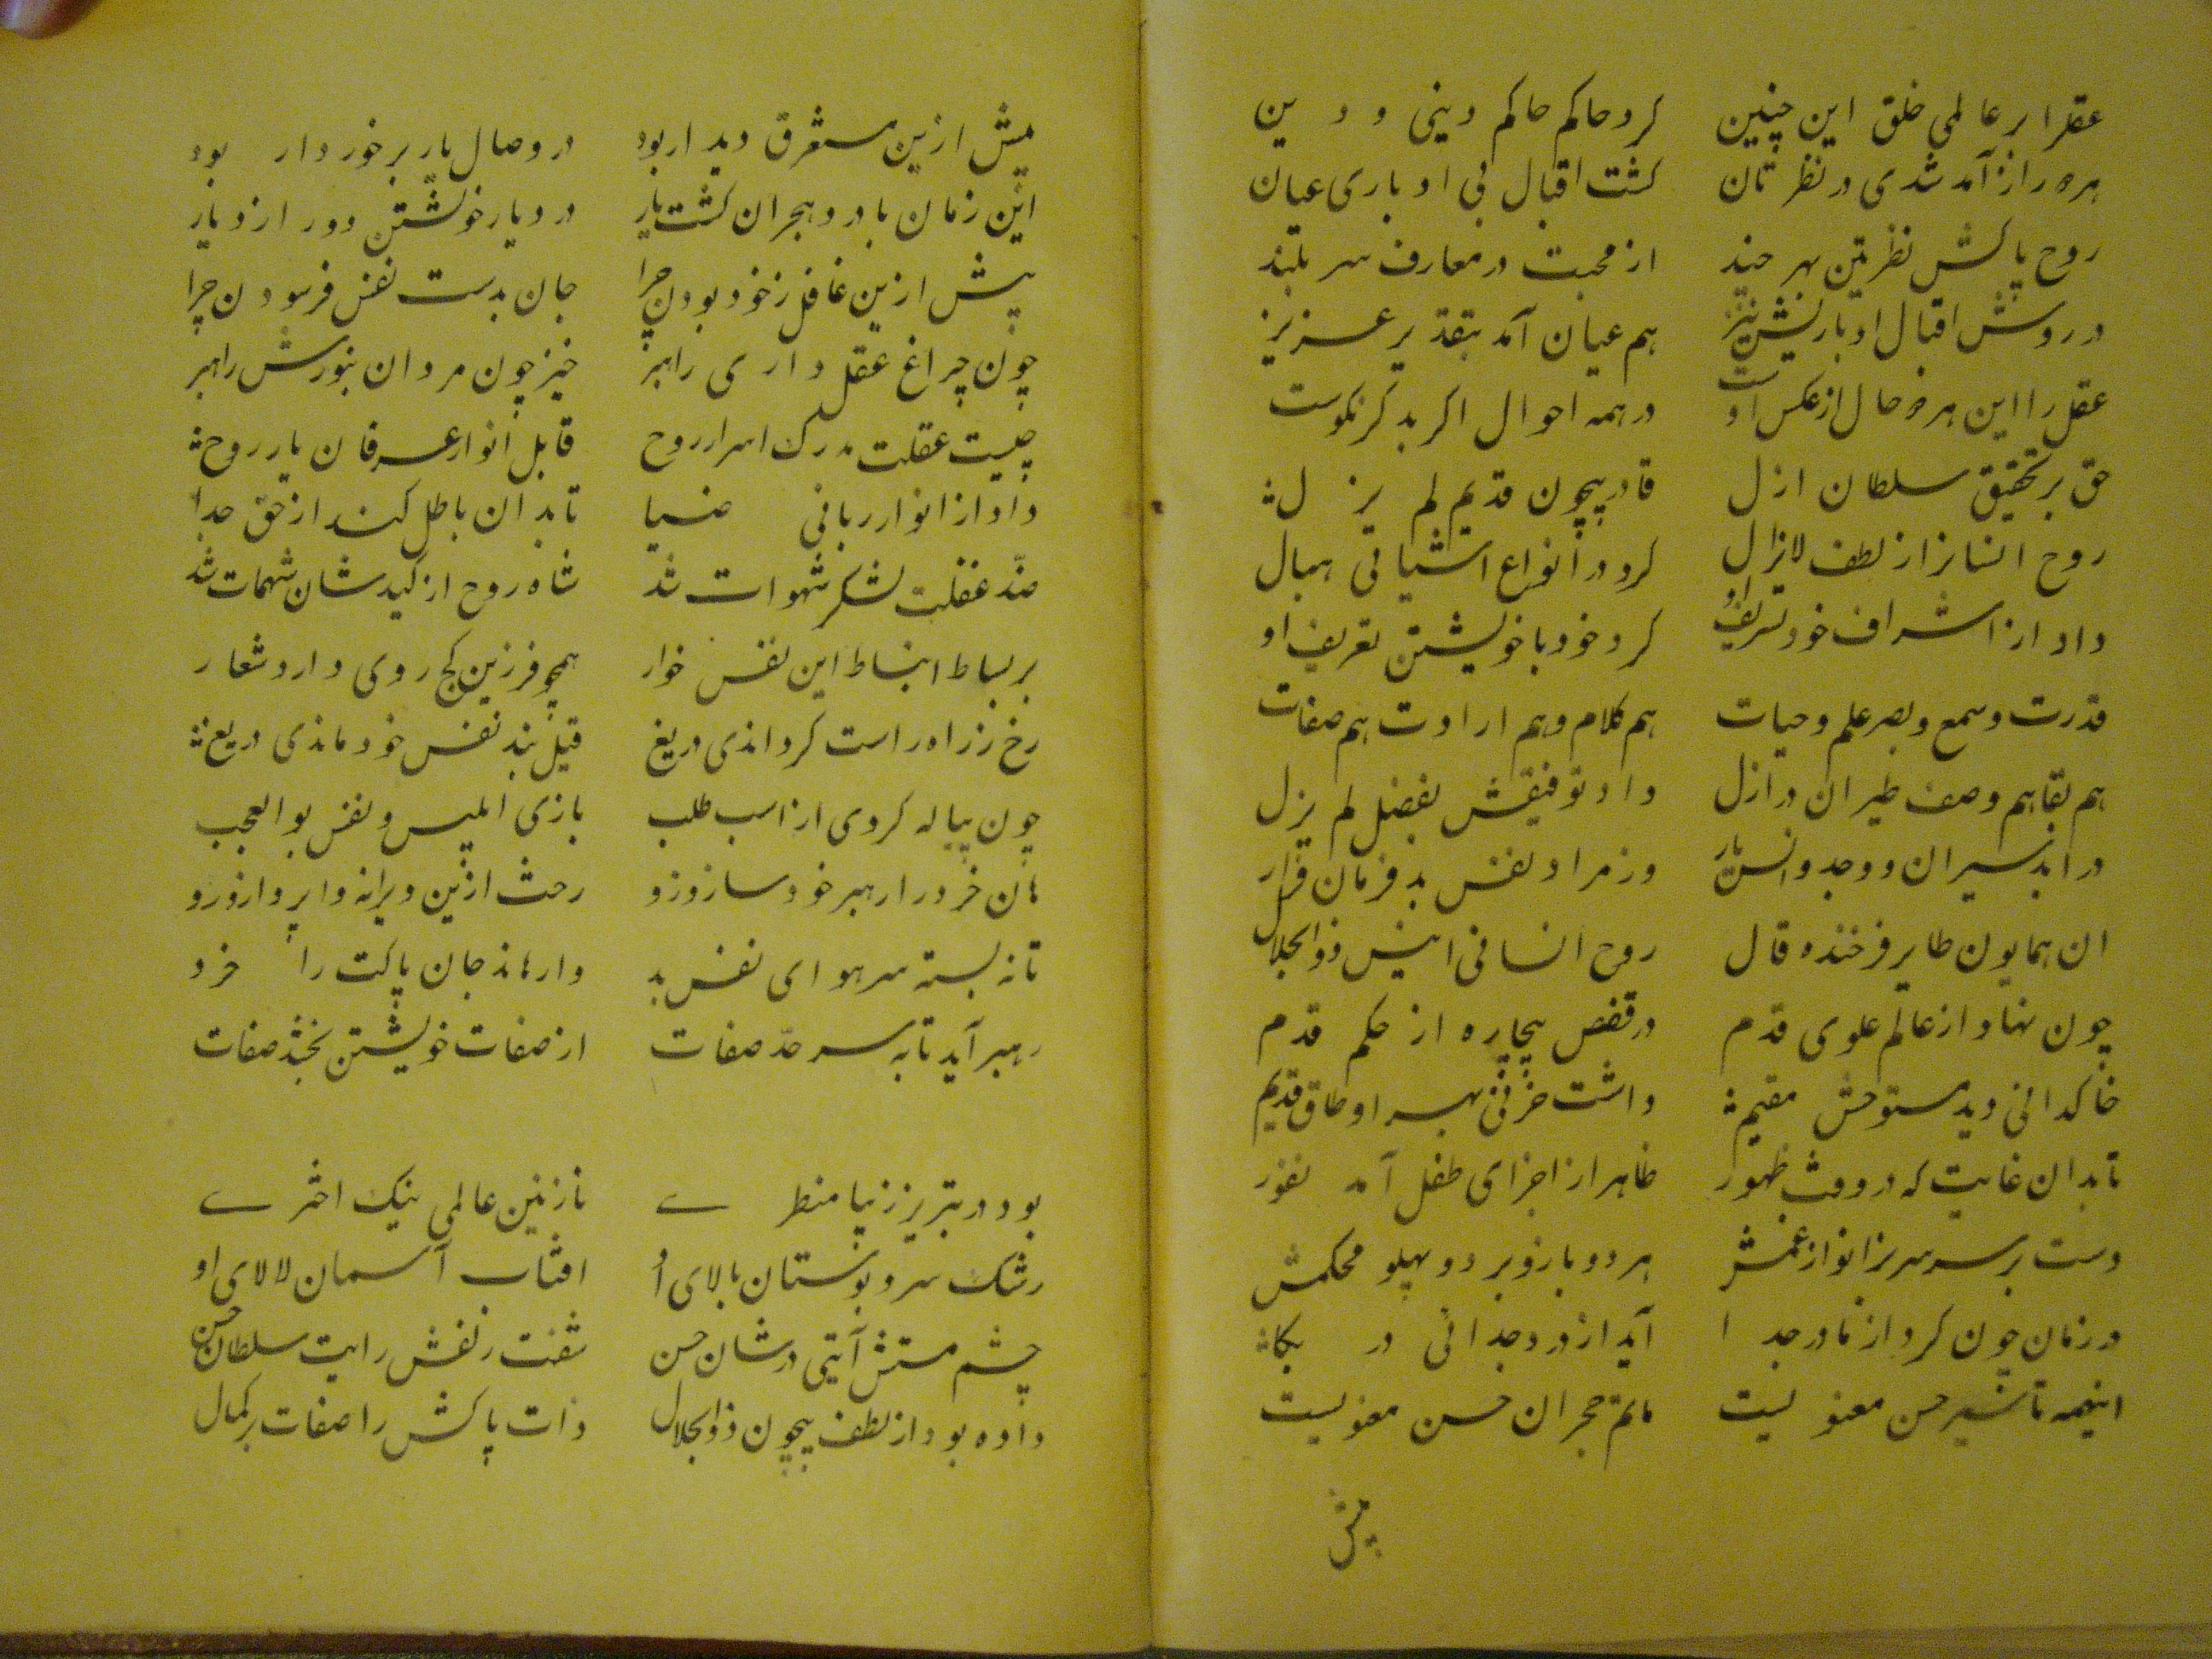 عقلرا بر عالمی خلق این چنین کرد حاکم حاکم دینی و دین
هر دو را از آمد شدی در نظرتان گشت اقبالی و ادباری عیان
روح پاکش نظر بتن هر چند از محبت در معارف سربلند
در روش اقبال ادباریش نیز هم عیان آمد بتقدیر عزیز
عقل را این هر دو حال از عکس اوست در همه احوال اگر بد گر نکوست
حق بر تحقیق سلطان ازل قادر بیچون قدیم لم یزل
روح انسانرا از لطف لایزال کرد در انواع اشیا بی همال
داد از اشراف خود تشریف او کرد خود با خویشتن تعریف او
قدرت و سمع و بصر علم و حیات هم کلام و هم ارادت هم صفات
هم بقا هم وصف طیران در ازل داد توفیقش بفضل لم یزل
در ابد سیران و وجد و انس یار وز مراد نفس بد فرمان فرار
ان همایون طایر فرخنده فال روح انسانی انیس ذوالجلال
چون نهاد از عالم علوی قدم در قفص بیچاره از حکم قدم
خاکدانی دید مستوحش مقیم داشت حزنی بهر اوطاق قدیم
تا بدان غایت که در وقت ظهور ظاهر از اجزای طفل آمد نفور
دست بر سر سر بزانو از غمش هر دو بازو بر دو پهلو محکمش
در زمان چون کرد از مادر جدا آید از درد جدائی در بکا
اینهمه تاثیر حسن معنویست ماتم هجران حسن معنویست
پیش
پیش ازین مستغرق دیدار بود در وصال یار برخوردار بود
این زمان با درد هجران گشت یار در دیار خویشتن دور از دیار
پیش ازین غافل ز خود بودن چرا جان بدست نفس فرسودن چرا
چون چراغ عقل داری راهبر خیز چون مردان بنورش راهبر
چیست عقلت مدرک اسرار روح قابل انوار عرفان یار روح
داد از انوار ربانی ضیا تا بدان باطل کند از حق جدا
ضدّ عقلت لشکر شهوات شد شاه روح از کید شان شهمات شد
بر بساط انبساط این نفس خوار همچو فرزین کج روی دارد شعار
رخ ز راه راست گرداندی دریغ فیل بند نفس خود ماندی دریغ
چون پیاله کردی از اسب طلب بازی ابلیس و نفس بوالعجب
هان خرد را رهبر خود ساز و زو رخت ازین ویرانه وا پرداز و رو
تا نه بسته سر هوای نفس بد وارهاند جان پاکت را خرد
رهبر آید تا به سر حدّ صفات از صفات خویشتن بخشد صفات
بود در تبریز زیبا منظری نازنین عالمی نیک اختری
رشک سرو بوستان بالای او افتاب آسمان لالای او
چشم مستش آیتی در شان حسن شقت زلفش رایت سلطان حسن
داده بود از لطف بیچون ذوالجلال ذات پاکش را صفات بر کمال